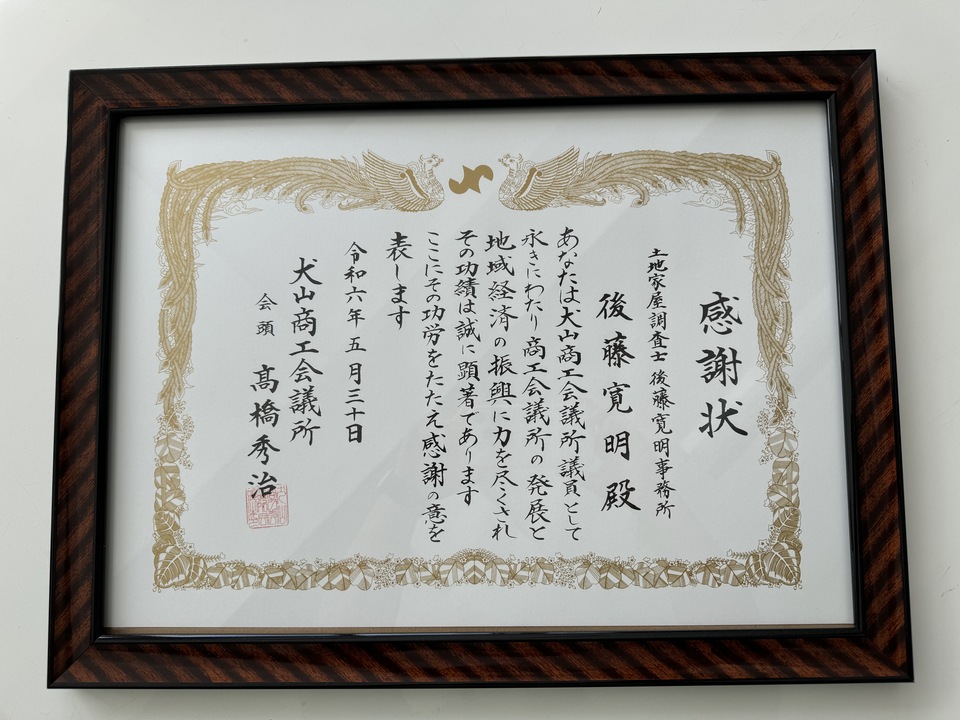 感謝状
土地家屋調査士 後藤寛明事務所
後藤寛明殿
あなたは犬山商工会議所議員として
永きにわたり商工会議所の発展と
地域経済の振興に力を尽くされ
その功績は誠に顕著であります
ここにその功労をたたえ感謝の意を
表します
令和六年五月三十日
犬山商工会議所
会頭 髙橋秀治